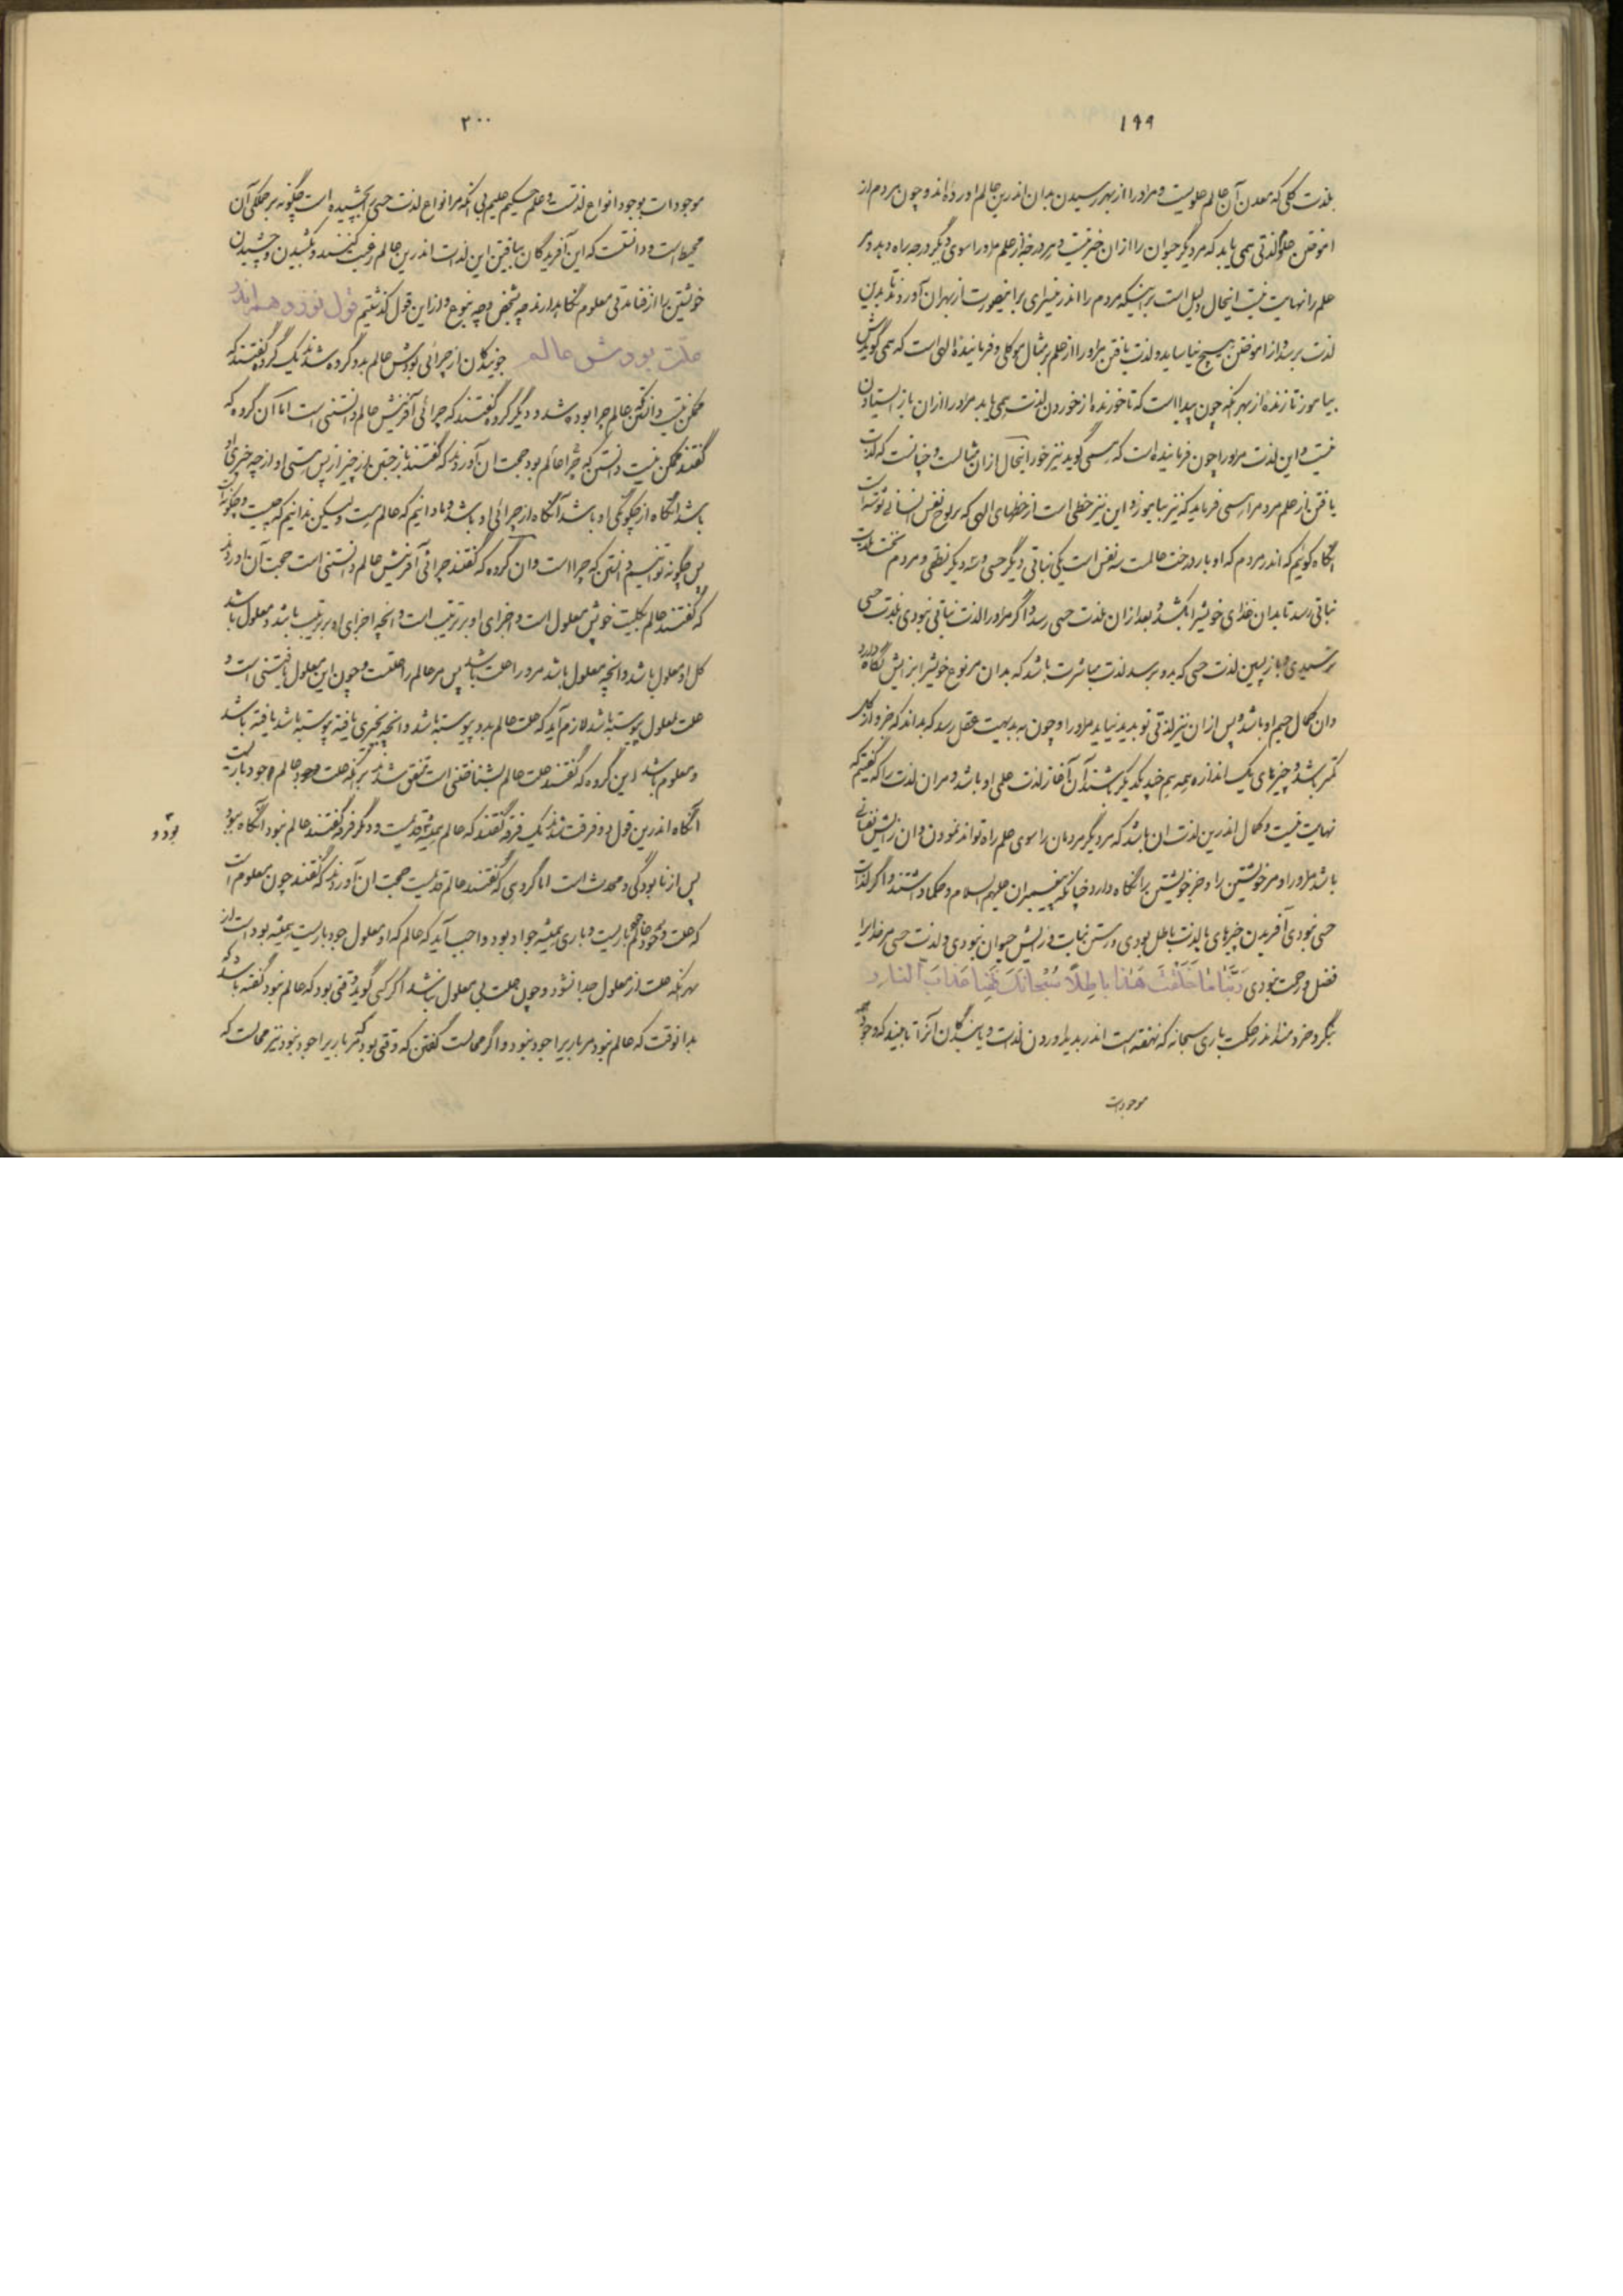 ۱۹۹
بلذت کلی که معدن آن عالم علویست و مر او را از بهر رسیدن بدان اندرین عالم آورده‌اند و چون مردم از
آموختن علم لذتی همی یابد که مر دیگر حیوان را از ان خبر نیست و هر درجه از علم مر او را سوی دیگر درجه راه دهد و مر
علم را نهایت نیست این حال دلیل است بر اینکه مردم را اندر سرای برای این صورت از بهر ان آوردند تا بدین
لذت برسد و از آموختن هیچ نیاساید و لذت یافتن مر او را از علم بر مثال موکلی و فرمایندۀ الهی است که همی گویدش
بیاموز تا زنده از بهر آنکه چون پیداست که تا خورنده از خوردن لذت همی یابد مر او را از ان باز ایستادن
نیست و این لذت مر او را چون فرماینده‌ است که همی گوید نیز خور این حال از ان مثالست و چنانست که لذت
یافتن از علم مردم را همی فرماید که نیز بیاموز و این نیز خطی است از خطهای الهی که بر لوح نفس انسانی نوشته است
آنگاه گوییم که اندر مردم که او بار درخت عالمست سه نفس است یکی نباتی و دیگر حسی و سه دیگر نطقی و مردم نخست بلذت
نباتی رسد تا بدان غذای خویش را بکشد و بعد از ان بلذت حسی رسد و اگر مر او را لذت نباتی نبودی بلذت حسی
نرسیدی و باز پسین لذت حسی که بدو برسد لذت مباشرت باشد که بدان مر نوع خویش را بزایش نگاه دارد
و ان کمال جسم او باشد و پس از ان نیز لذتی نو پدید نیاید مر او را و چون به بدیهت عقل رسد که بداند که جزو از کل
کمتر باشد و چیزهای یک اندازه همه هم چند یکدیگر باشند آن آغاز لذت علمی او باشد و مر ان لذت را که گفتیم که
نهایت نیست و کمال اندرین لذت ان باشد که مر دیگر مردمان را سوی علم راه تواند نمودن و ان زایش نفسانی
باشد مر او را و مر خویشتن را و جز خویشتن را نگاه دارد چنانکه پیغمبران علیهم السلام و حکما داشتند و اگر لذات
حسی نبودی آفریدن چیزهای با لذت باطل بودی و رستن نبات و زایش حیوان نبودی و لذت حسی مر خدایرا
فضل و رحمت نبودی رَبَّنا ما خَلَقْتَ هَذا باطِلًا سُبْحانَكَ فَقِنا عَذابَ النارِ و
بنگرد خردمند اندر حکمت باری سبحانه که نهفته است اندر پدید آوردن لذت و یابندگان آنرا تا ببیند که وجود همه
موجودات
۲۰۰
موجودات بوجود انواع لذتست و علم حکیم علیم بی آنکه مر انواع لذت حسی را بچشیده است چگونه بر جملگی آن
محیط است و دانست که این آفریدگان بیافتن این لذات اندرین عالم رغبت کنند و بکشیدن و چشیدن
خویشتن را از فنا مدتی معلوم نگاه دارند چه بشخص و چه بنوع و از این قول گذشتیم قول نوزدهم اندر
علّت بودش عالم جویندگان از چرائی بودش عالم بدو گروه شدند یک گروه گفتند که
ممکن نیست دانستن که عالم چرا بوده شد و دیگر گروه گفتند که چرائی آفرینش عالم دانستنی است اما آن گروه که
گفتند ممکن نیست دانستن که چرا عالم بود حجت ان آوردند که گفتند باز جستن از چیز از پس هستی او از چه چیزی او
باشد آنگاه از چگونگی او باشد آنگاه از چرائی او باشد و ما دانیم که عالم هست ولیکن ندانیم که چیست و چگونه است
پس چگونه توانیم دانستن که چراست و ان گروه که گفتند چرائی آفرینش عالم دانستنی است حجت آن آوردند
که گفتند عالم بکلیت خویش معلول است و اجزای او بر ترتیب است و آنچه اجزای او بر ترتیب باشد و معلول باشد
کل او معلول باشد و آنچه معلول باشد مر او را علت باشد پس مر عالم را علتست و چون این معلول یافتنی است و
علت بمعلول پیوسته باشد لازم آید که علت عالم بدو پیوسته باشد و آنچه بچیزی یافته پیوسته باشد یافته باشد
و معلوم باشد و این گروه که گفتند علت عالم بشناختنی است متفق شدند بر آنکه علت وجود عالم جود باریست
آنگاه اندرین قول بدو فرقت شدند یک فرقه گفتند که عالم همیشه قدیمست و دیگر فرقه گفتند عالم نبود آنگاه ببود
بود و
پس از نابودگی و محدث است اما گروهی که گفتند عالم قدیمست حجت ان آوردند که گفتند چون معلوم است
که علت وجود عالم جود باریست و باری همیشه جواد بود واجب آید که عالم که او معلول جود باریست همیشه بوده است از
بهر آنکه علت از معلول جدا نشود و چون علت بی معلول نباشد اگر کسی گوید وقتی بود که عالم نبود گفته باشد که
بدانوقت که عالم نبود مر باریرا جود نبود و اگر محالست گفتن که وقتی بود که مر باریرا جود نبود نیز محالست که